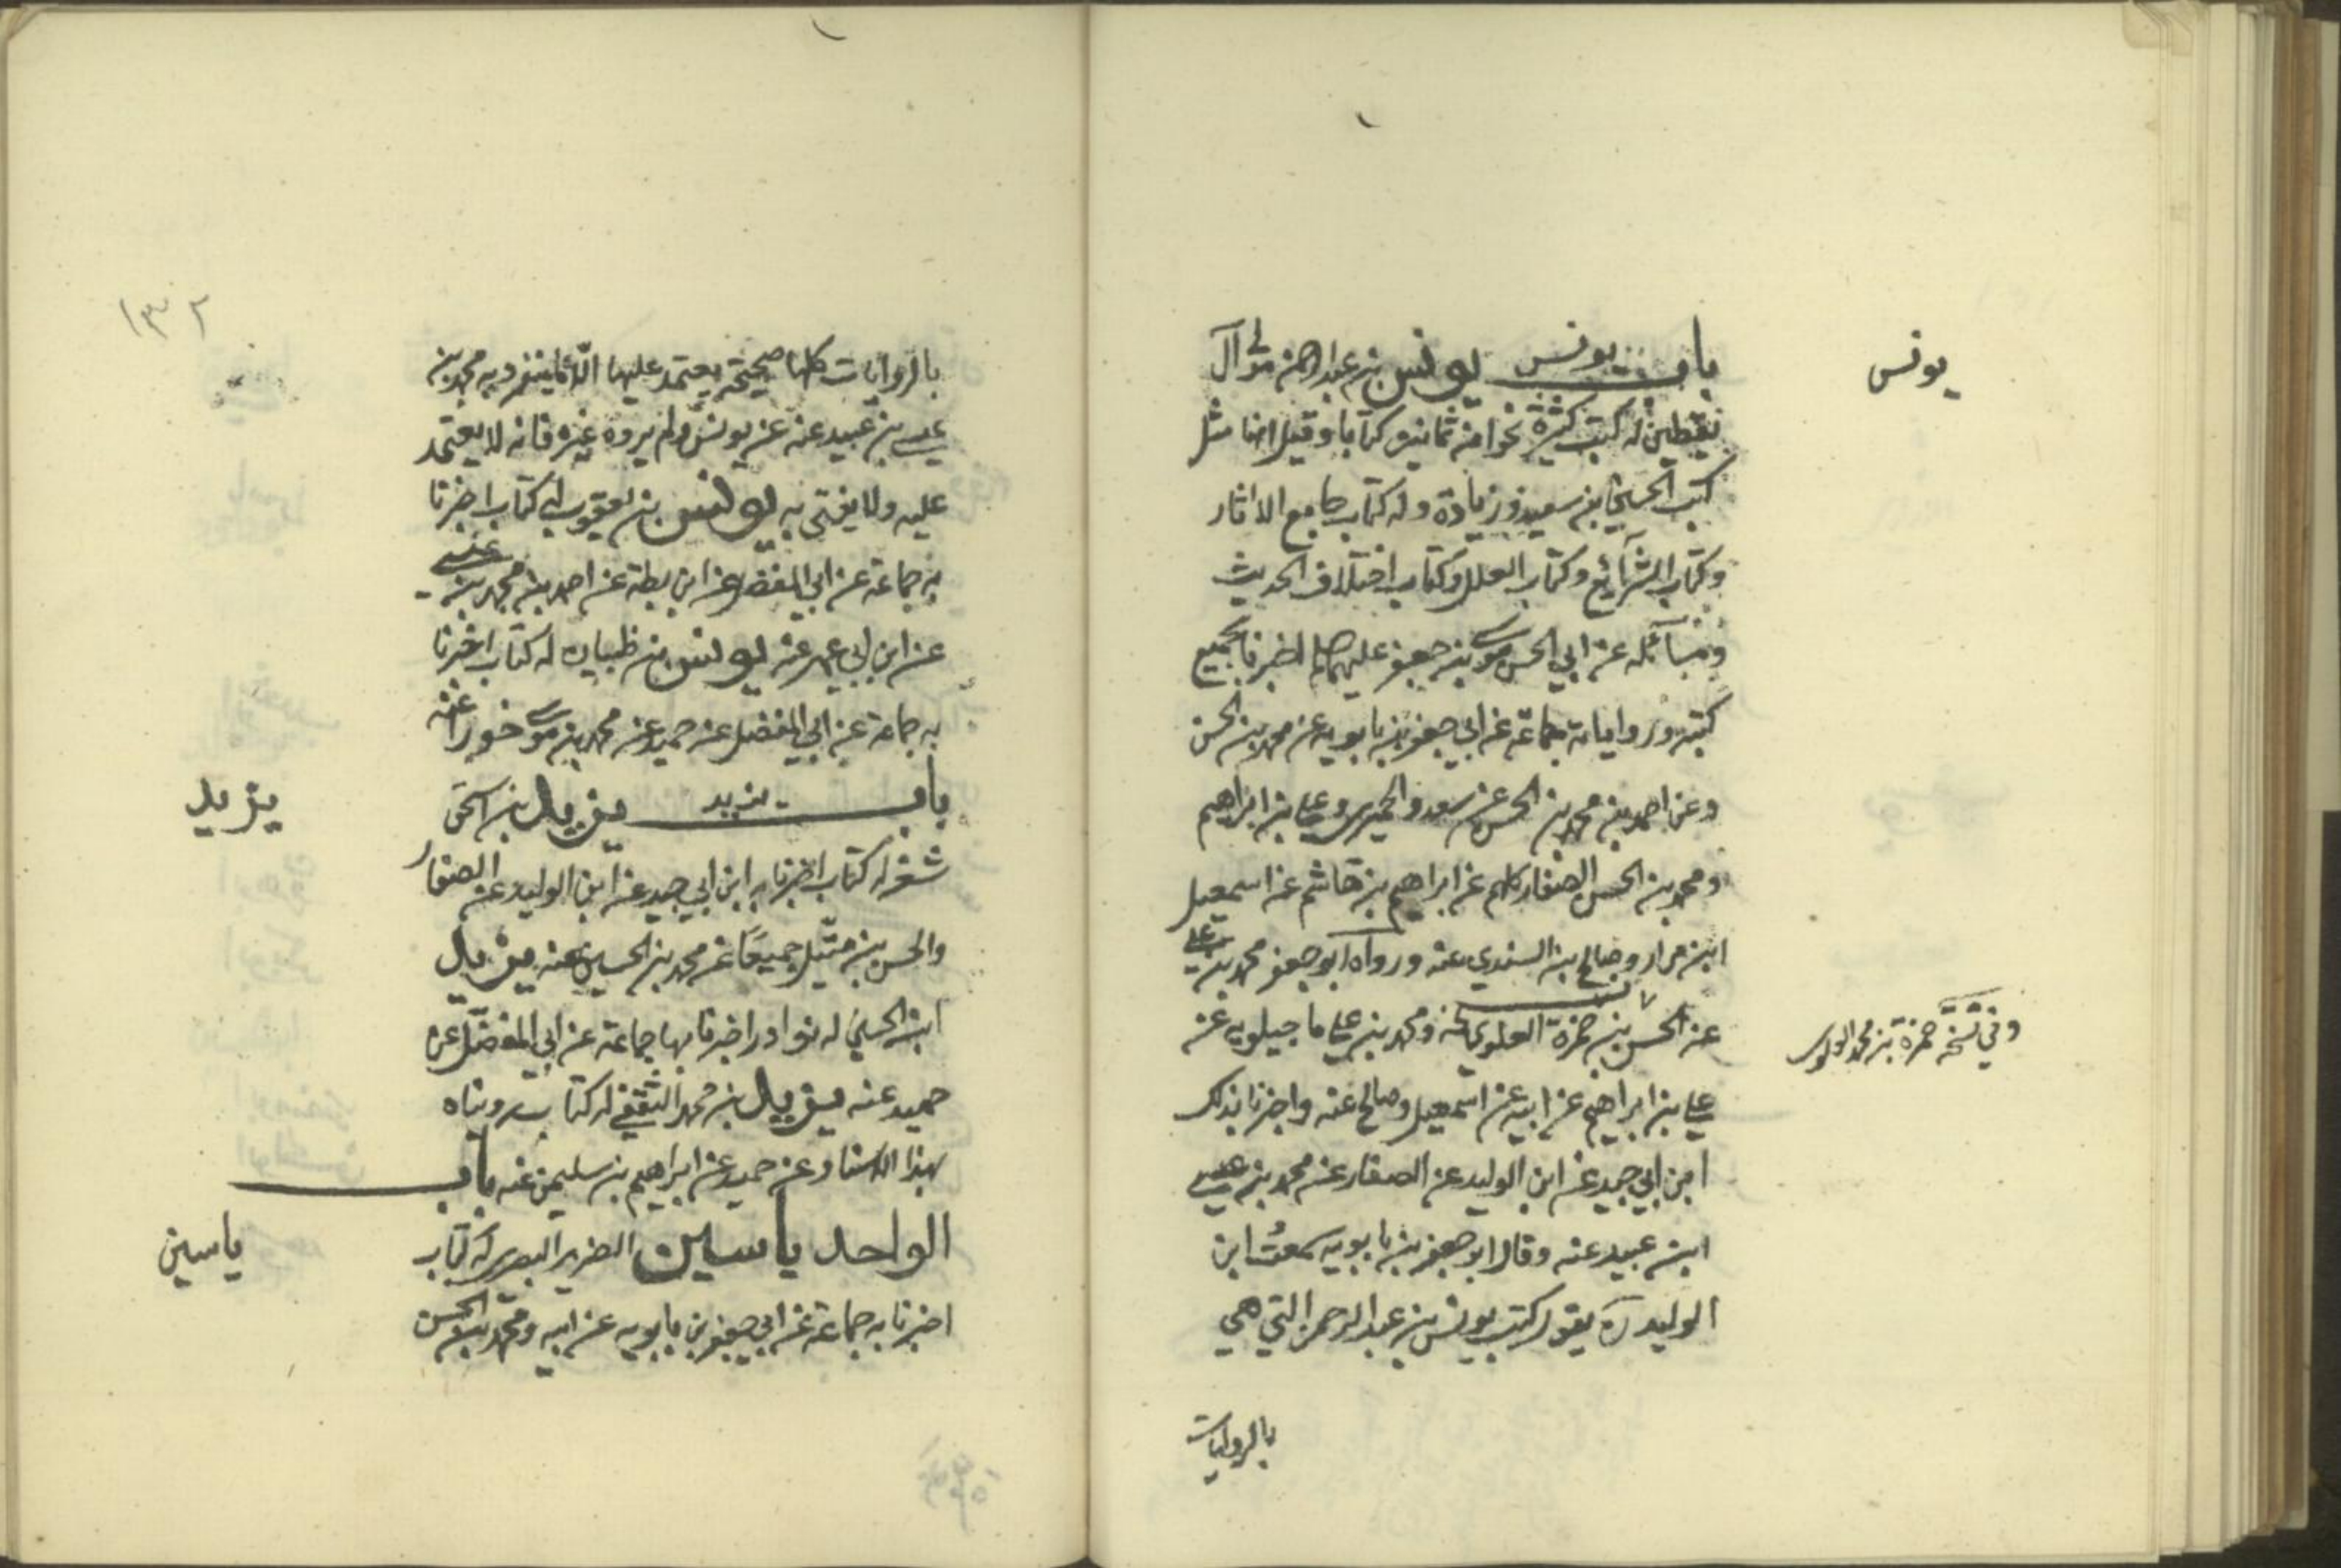 يونس
باب يونس يونس بن عبد الرحمن مولى آل
يقطين له كتب كثيرة نحوا من ثمانين كتابا وقيل انها مثل
كتب الحسين بن سعيد وزيادة وله كتاب جامع الاثار
وكتاب الشرائع وكتاب العلل وكتاب اختلاف الحديث
ومسائله عن ابي الحسن موسى بن جعفر عليهما اخبرنا بجميع
كتبه ورواياته جماعة عن ابي جعفر بن بابويه عن محمد بن الحسن
وعن احمد بن محمد بن الحسن عن سعد والحميري وعلي بن ابراهيم
ومحمد بن الحسن الصفار كلهم عن ابراهيم بن هاشم عن اسمعيل
ابن مرار وصالح بن السندي عنه ورواه ابو جعفر محمد بن علي
عن الحسن بن حمزة العلوي ومحمد بن علي ماجيلويه عن
وفي نسخة حمزة بن محمد العلوي
علي بن ابراهيم عن ابيه عن اسمعيل وصالح عنه واخبرنا بذلك
ابن ابي جيد عن ابن الوليد عن الصفار عن محمد بن عيسى
ابن عبيد عنه وقال ابو جعفر بن بابويه سمعت ابن
الوليد ره يقول كتب يونس بن عبد الرحمن التي هي
بالروايات
١٣٢
بالروايات كلها صحيحة يعتمد عليها الا ما ينفرد به محمد بن
عيسى بن عبيد عنه عن يونس ولم يروه غيره فانه لا يعتمد
عليه ولا يفتى به يونس بن يعقوب له كتاب اخبرنا
به جماعة عن ابي المفضل عن ابن بطة عن احمد بن محمد بن عيسى
عن ابن ابي عمير عنه يونس بن ظبيان له كتاب اخبرنا
به جماعة عن ابي المفضل عن حميد عن محمد بن موسى خوراء عنه
باب يزيد يزيد بن اسحق
يزيد
شغر له كتاب اخبرنا به ابن ابي جيد عن ابن الوليد عن الصفار
والحسن بن متيل جميعا عن محمد بن الحسين عنه يزيد
ابن الحسين له نوادر اخبرنا بها جماعة عن ابي المفضل عن
حميد عنه يزيد بن محمد الثقفي له كتاب رويناه
بهذا الاسناد عن حميد عن ابراهيم بن سليمن عنه باب
الواحد ياسين الضرير البصري له كتاب
ياسين
اخبرنا به جماعة عن ابي جعفر بن بابويه عن ابيه ومحمد بن الحسن